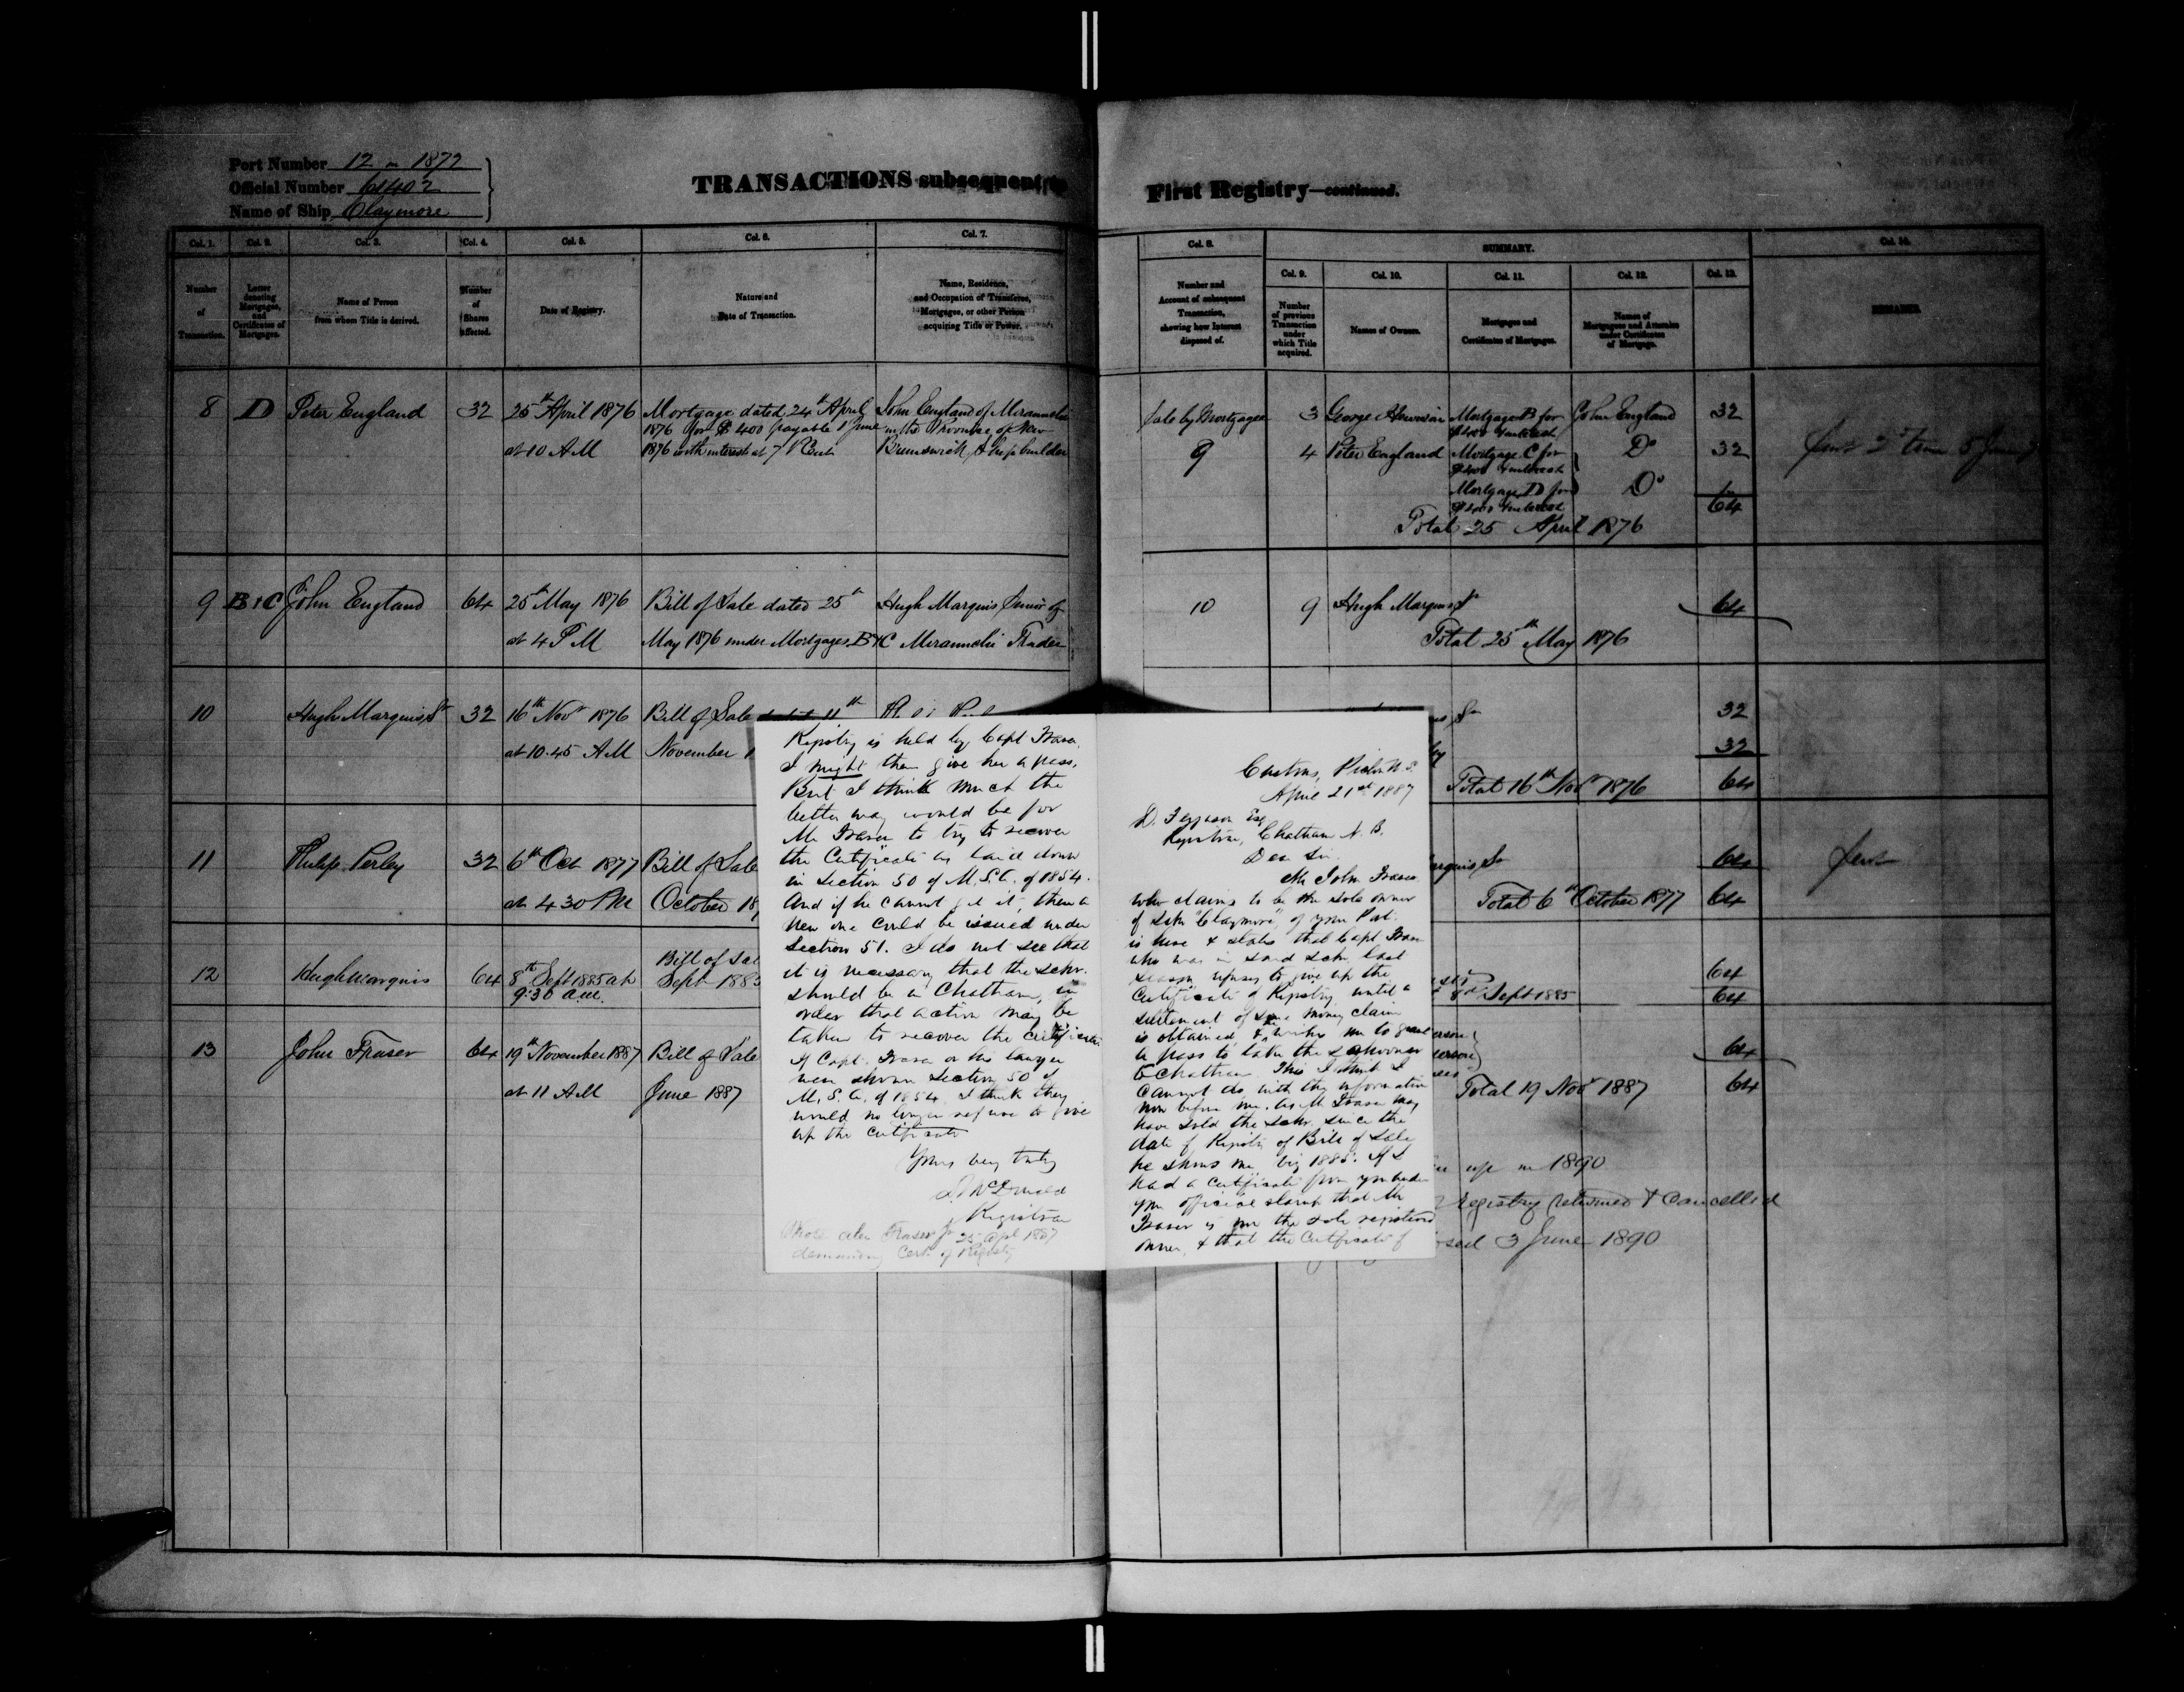 Port Number 12 in 1872
Official Number 61402
Name of Ship Claymore
TRANSACTIONS subsequent to
First Registry—continued.
Col. 1.
Col. 2.
Col. 3.
Col. 4.
Col. 5.
Col. 6.
Col. 7.
Number
of
Transaction.
Letter
denoting
Mortgages,
and
Certificates of
Mortgages.
Name of Person
from whom Title is derived.
Number
of
Shares
affected.
Date of Registry.
Nature and
Date of Transaction.
Name, Residence,
and Occupation of Transferee,
Mortgagee, or other Person
acquiring Title or Power.
Col. 8.
SUMMARY.
Number and
Account of subsequent
Transaction,
showing how Interest
disposed of.
Col. 9.
Col. 10.
Col. 11.
Col. 12.
Col. 13.
Number
of previous
Transaction
under
which Title
acquired.
Names of Owners.
Mortgages and
Certificates of Mortgages.
Names of
Mortgagees and Attornies
under Certificates
of Mortgage.
REMARKS.
8 D Peter England 32 25th April 1876 Mortgage dated 24th April John England of Miramichi
1876 for $400 payable 1 June in the Province of New
at 10 AM 1876 with interest at 7 P Cent Brunswick Shipbuilder
Sale by Mortgagee 3 George Mortgage B for John England 32
$400 & interest
9 4 Peter England Mortgage C for Do 32
$400 & interest
Mortgage D for Do
$400 & interest 64
Total 25 April 1876
9 B & C John England 64 25th May 1876 Bill of Sale dated 25th Hugh Marquis Senior of
at 4 PM May 1876 under Mortgages B & C Miramichi Trader
10 9 Hugh Marquis Sr 64
Total 25th May 1876
10 Hugh Marquis Sr 32 16th Novr 1876 Bill of Sale dated 11th
at 10.45 AM November 1
Sr 32
32
Total 16th Novr 1876 64
11 Philip Perley 32 6th Oct 1877 Bill of Sale
at 4 30 PM October 18
arquis Sr 64
Total 6th October 1877 64
12 Hugh Marquis 64 8th Sept 1885 at Bill of Sal
9.30 a.m. Sept 1885
64
8th Sept 1885 64
13 John Fraser 64 19th November 1887 Bill of Sale
at 11 AM June 1887
64
Total 19 Novr 1887 64
up in 1890
Registry returned & Cancelled
osed 3 June 1890
Customs, Pictou N.S.
April 21st 1887
D. Ferguson Esq
Registrar, Chatham N. B.
Dear Sir.
Mr John Fraser
who claims to be the sole owner
of Schr "Claymore", of your Port
is here & states that Capt Fraser
who was in said Schr. last
season refuses to give up the
Certificate of Registry until a
settlement of some money claim
is obtained, & wishes me to grant
a pass to take the Schooner
to Chatham. This I think I
cannot do with the information
now before me. As Mr Fraser may
have sold the Schr. since the
date of Registry of Bill of Sale
he shows me, viz 1885. If I
had a Certificate from you under
your official stamp that Mr
Fraser is now the sole registered
owner, & that the Certificate of
Registry is held by Capt Fraser.
I might then give her a pass.
But I think much the
better way would be for
Mr Fraser to try to recover
the Certificate as laid down
in Section 50 of M.S.A. of 1854.
And if he cannot get it, then a
new one could be issued under
Section 51. I do not see that
it is necessary that the schr.
should be in Chatham, in
order that action may be
taken to recover the certificate
If Capt. Fraser or his lawyer
were shown Section 50 of
M.S.A. of 1854 I think they
would no longer refuse to give
up the Certificate
Yours very truly
D. McDonald
Registrar
Wrote Fraser Jr 25 Apl 1887
demanding Cert. of Registry